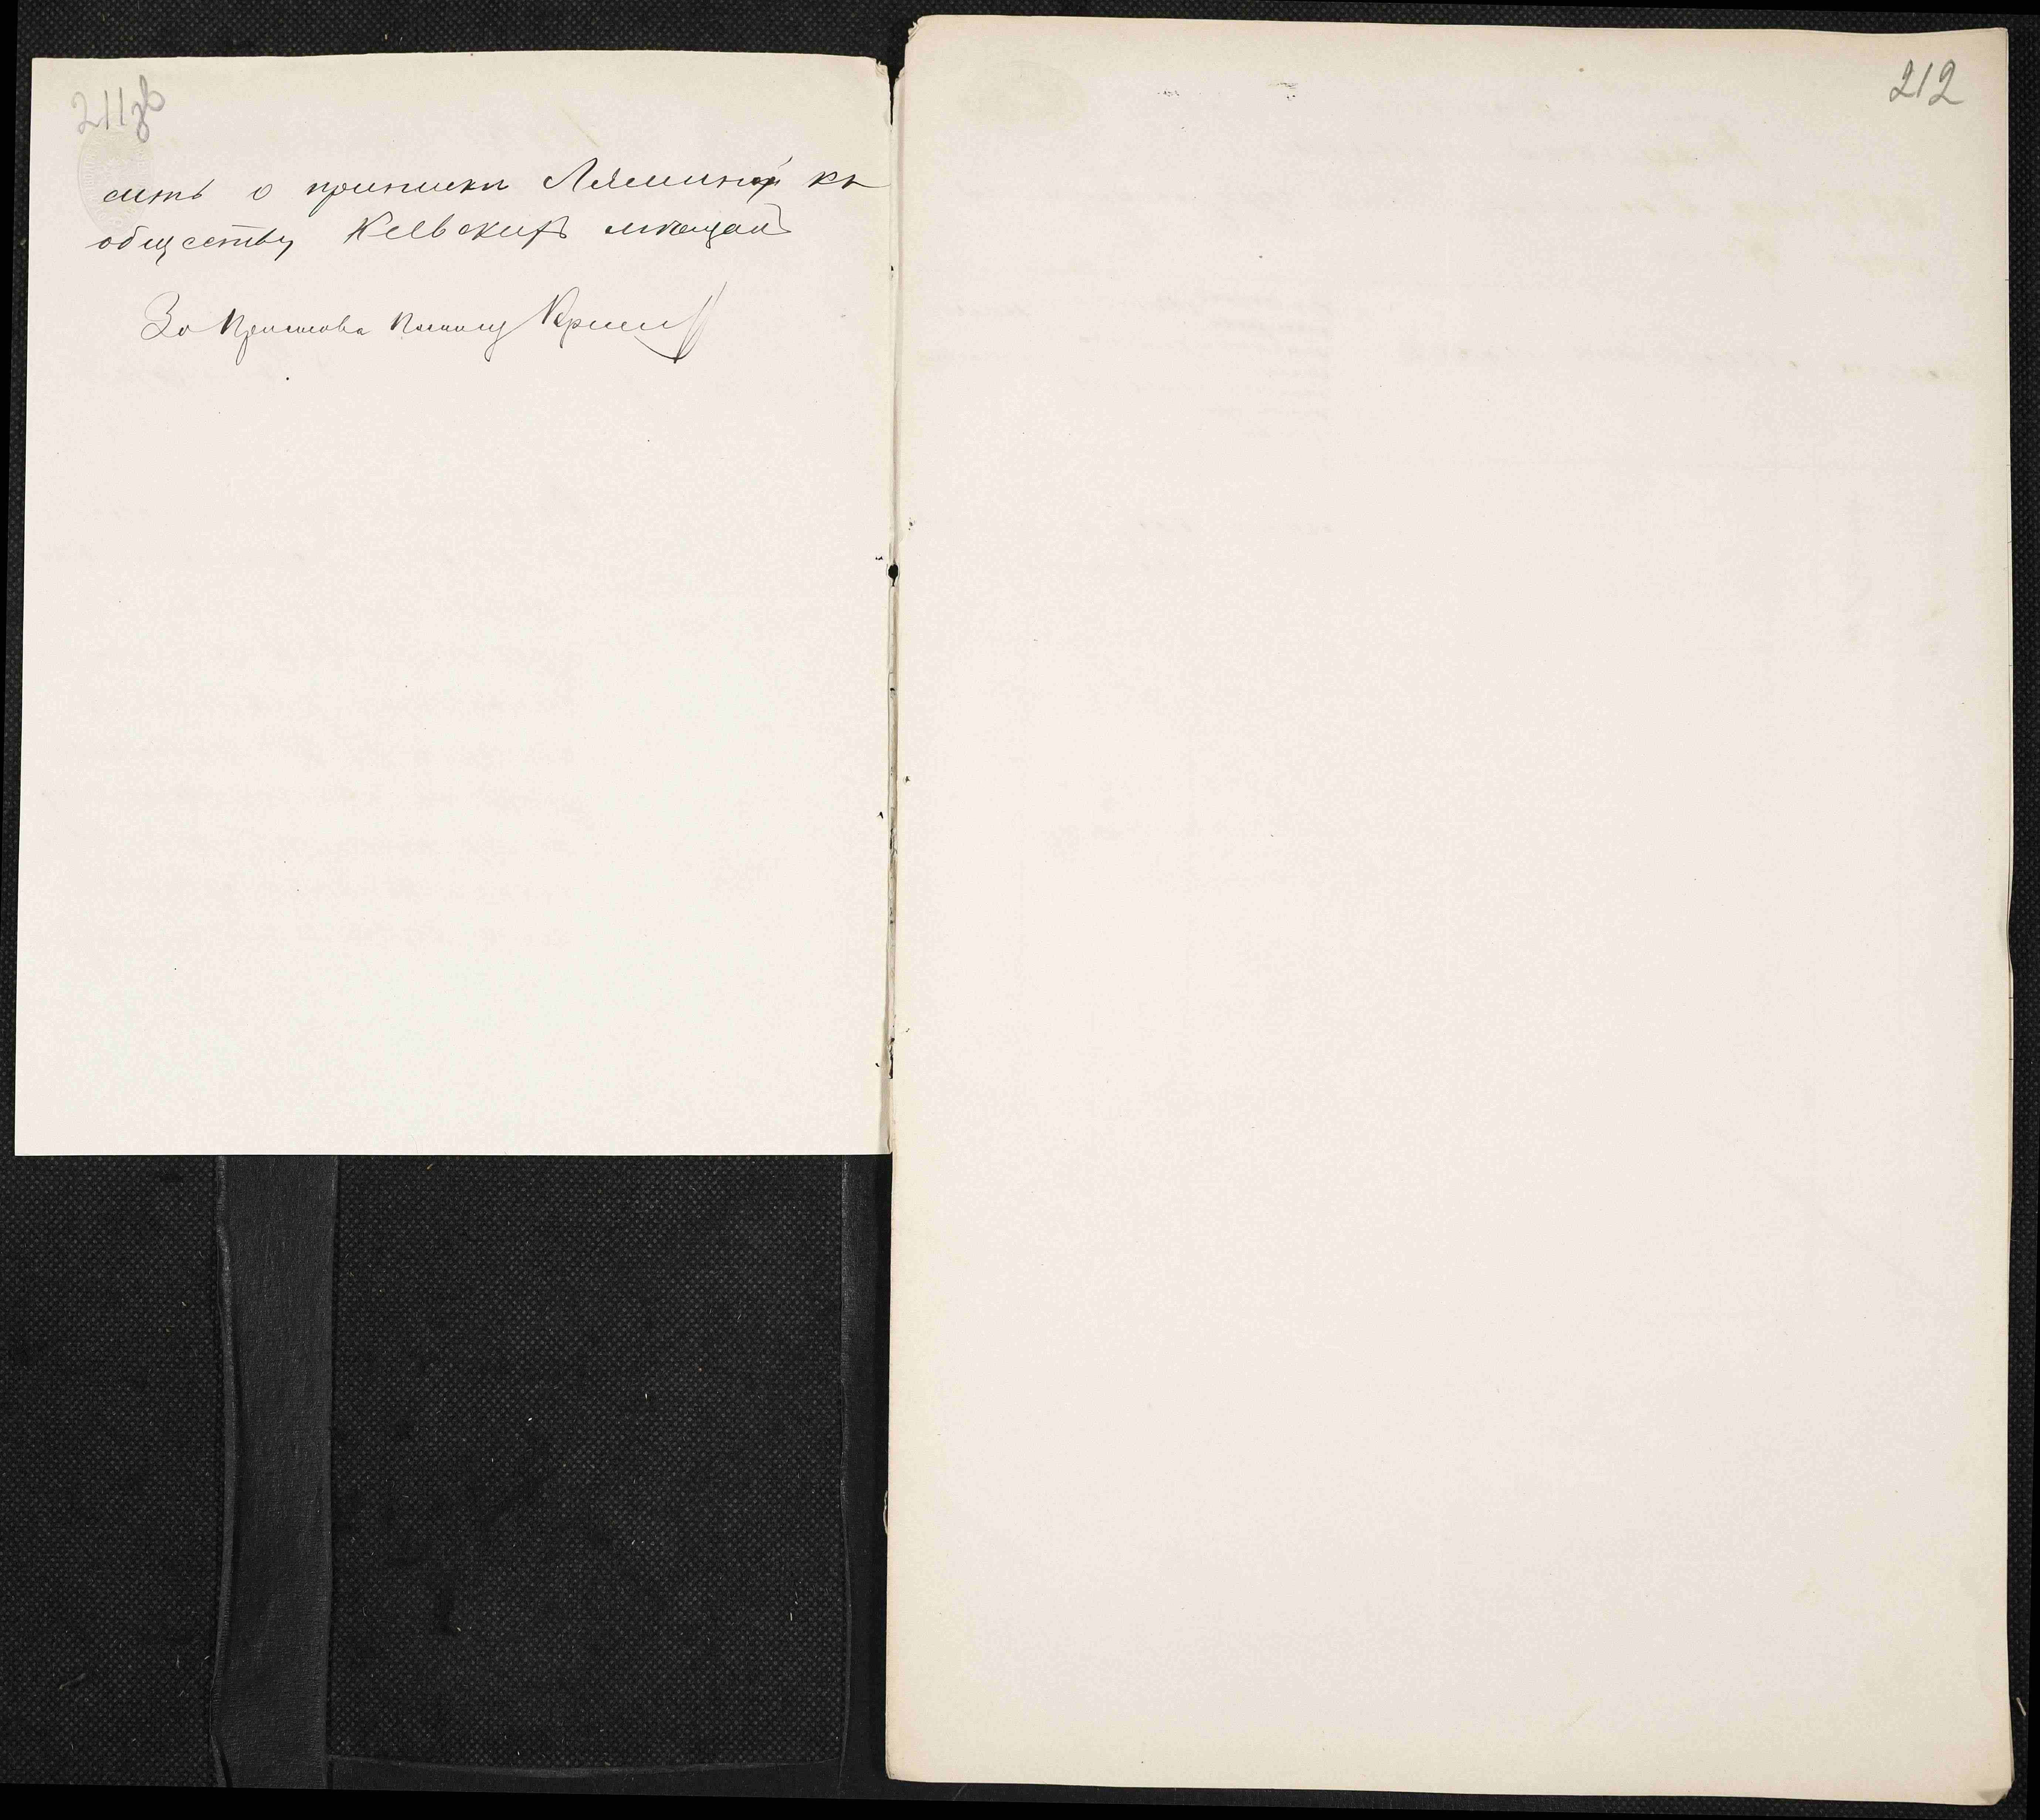 211зв
сить о приписки Лямины къ
обществу Кіевскихъ мѣщанъ
За Пристава Помощ
212